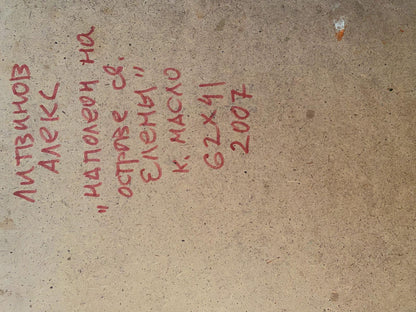 ЛИТВИНОВ
АЛЕКС
"НАПОЛЕОН НА
ОСТРОВЕ СВ.
ЕЛЕНЫ"
К. МАСЛО
62X41
2007